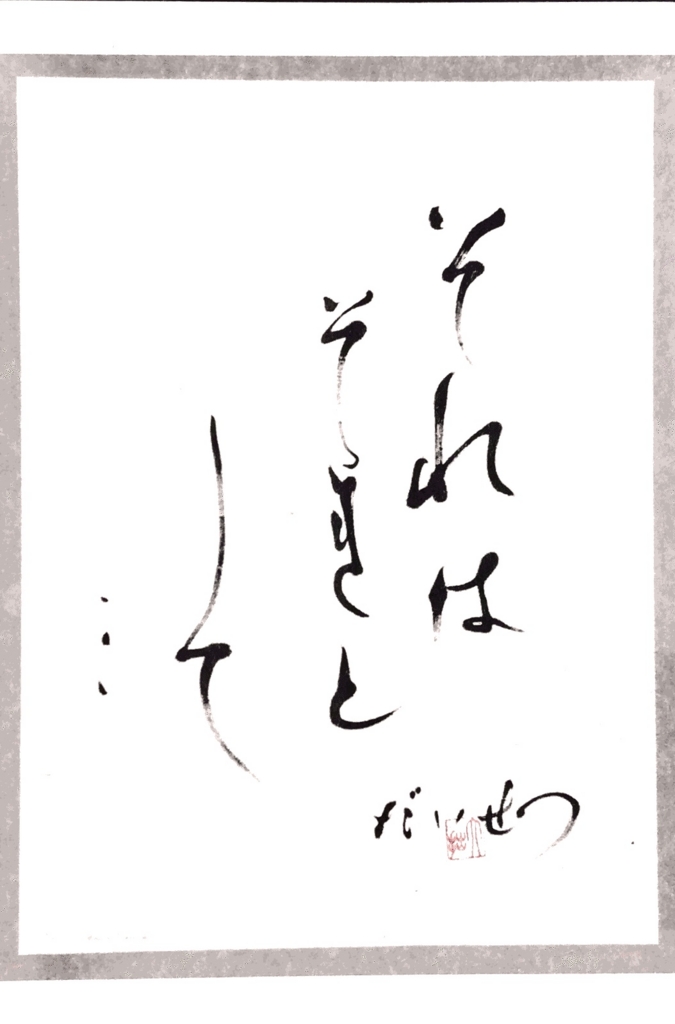 それは
それと
して
…
だいせつ